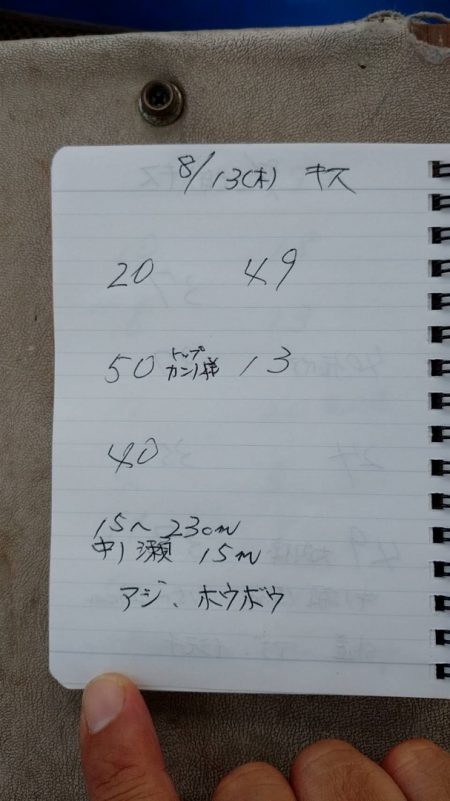 8/13(木) キス
20 49
50 トップ カンノ様 13
40
15〜23cm
中ノ瀬 15m
アジ、ホウボウ